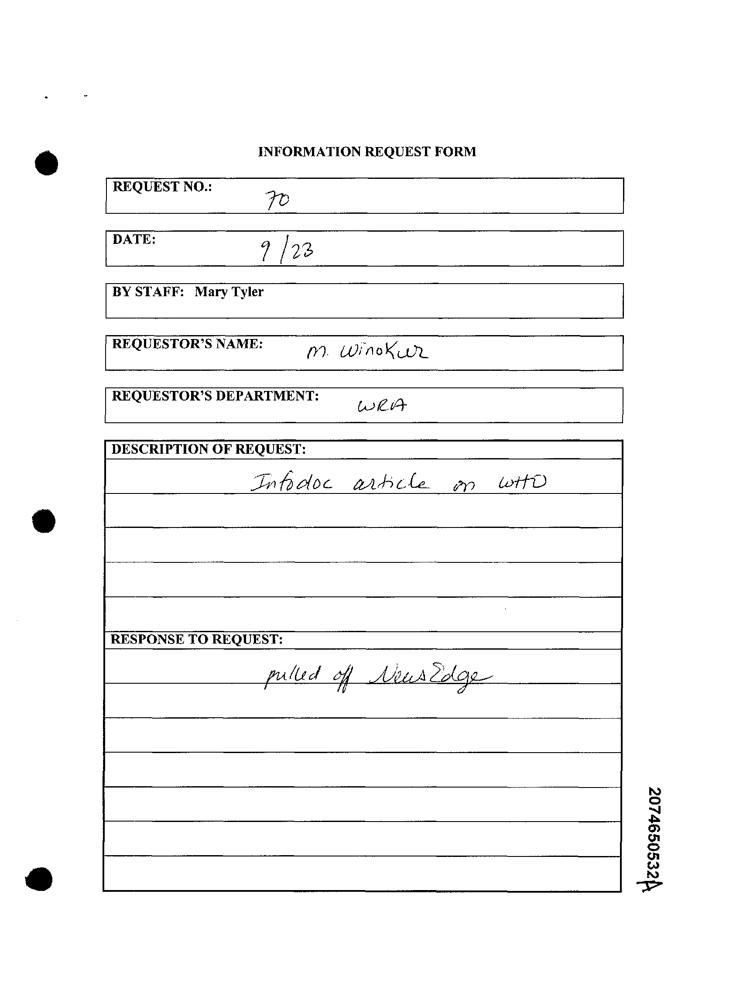 INFORMATION REQUEST FORM
REQUEST NO.: 70
DATE: 9/23
BY STAFF: Mary Tyler
REQUESTOR'S NAME: M. Winokur
REQUESTOR'S DEPARTMENT: WRA
DESCRIPTION OF REQUEST:
Infodoc article on WHO
RESPONSE TO REQUEST:
pulled off NewsEdge
2074650532A